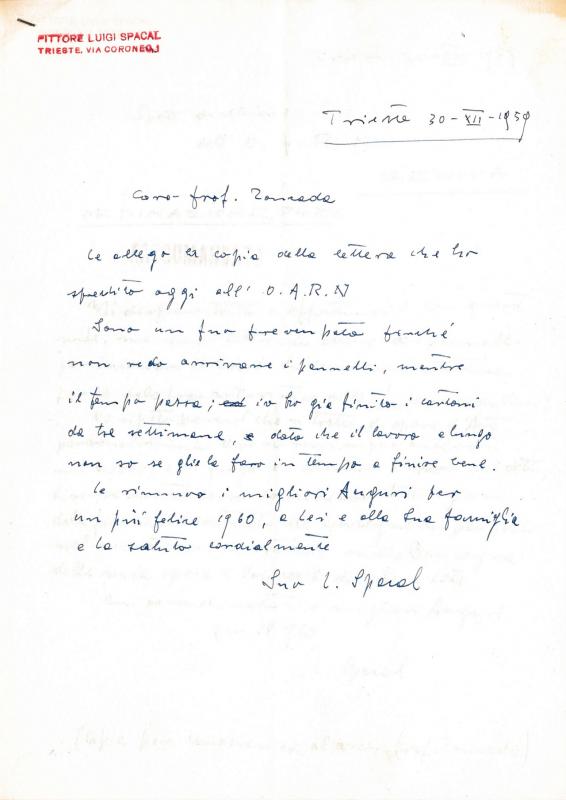 PITTORE LUIGI SPACAL
TRIESTE, VIA CORONEO,1
Trieste 30-XII-1959
Caro prof.
Le allego la copia della lettera che ho
spedito oggi all' O.A.R.N
Sono un po' preoccupato perché
non vedo arrivare i pannelli, mentre
il tempo passa, io ho già finito i cartoni
da tre settimane, e dato che il lavoro è lungo
non so se gliela farò in tempo a finire bene.
Le rinnovo i migliori Auguri per
un più felice 1960, a Lei e alla Sua famiglia
e La saluto cordialmente
Suo L. Spacal